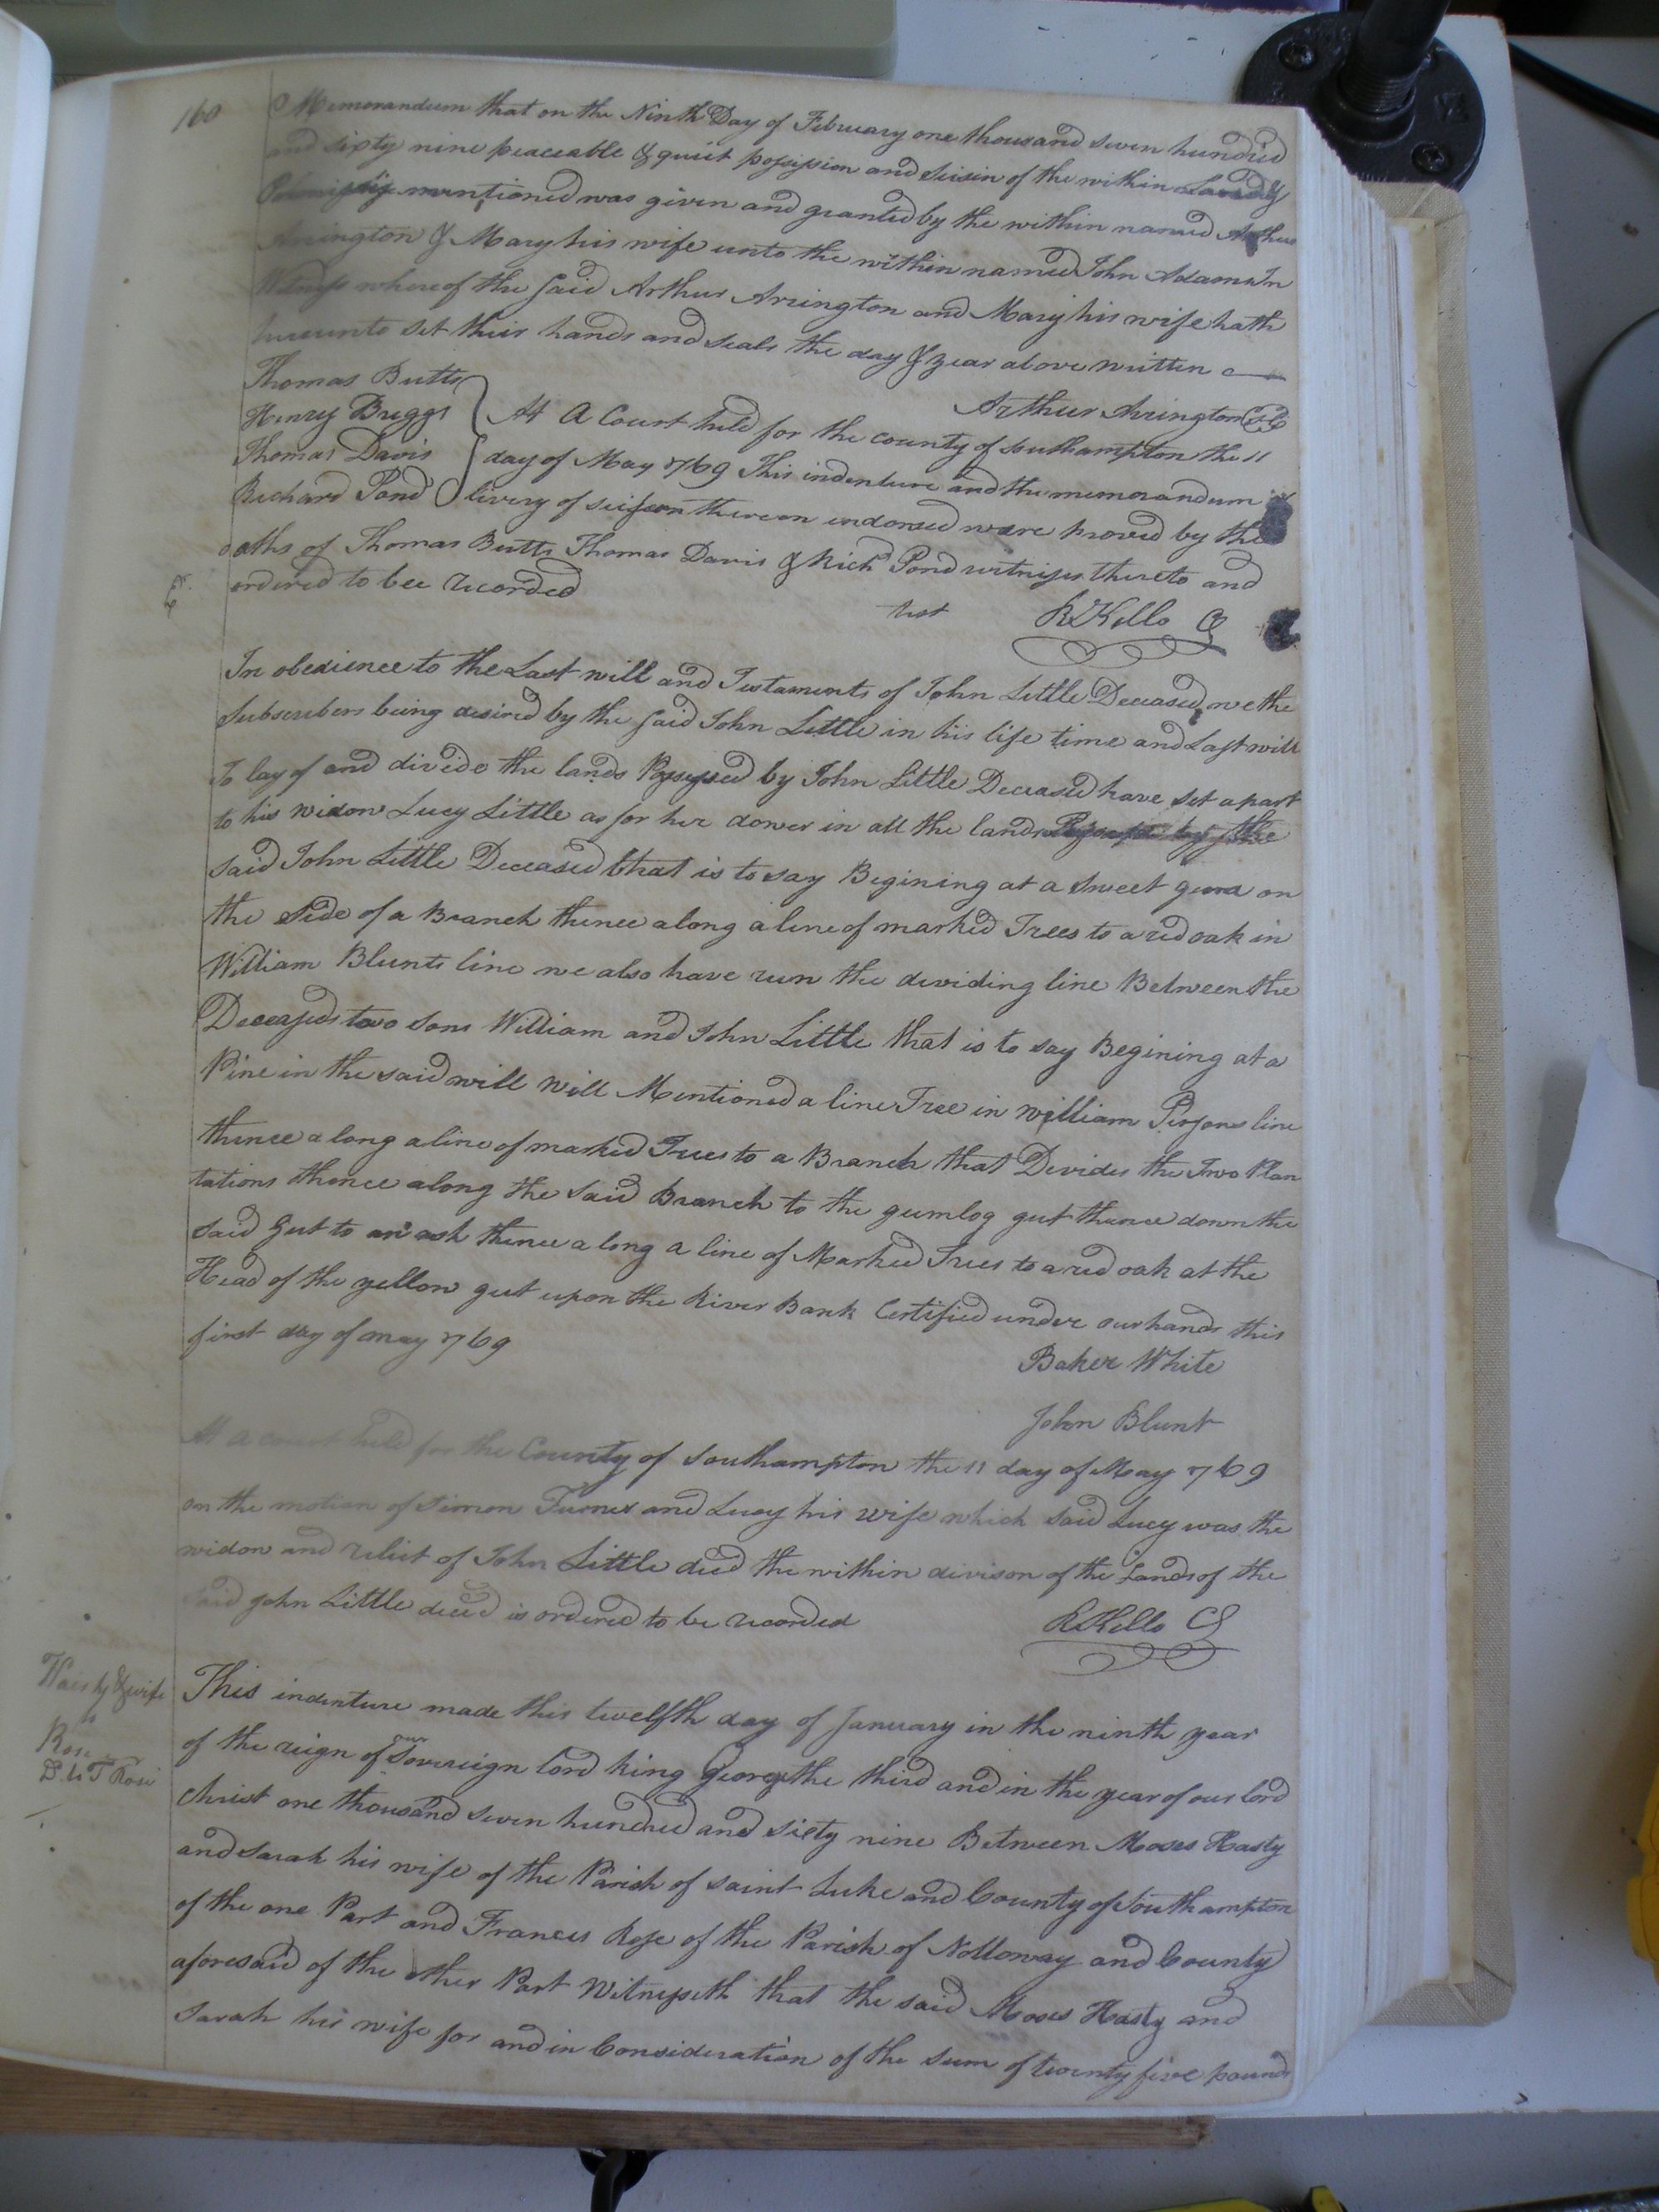 160
Memorandum that on the Ninth Day of February one thousand seven hundred
and sixty nine peaceable & quiet possession and Seisin of the within Land &
Premisses mentioned was given and granted by the within named Arthur
Arrington & Mary his wife unto the within named John Adams In
Witness whereof the said Arthur Arrington and Mary his wife hath
hereunto set their hands and seals the day & year above written
Arthur Arrington
Thomas Butts
Henry Briggs
Thomas Davis
Richard Pond
At A Court held for the county of Southampton the 11
day of May 1769 This indenture and the memorandum
livery of seison thereon indorsed were proved by the
oaths of Thomas Butts Thomas Davis & Richd Pond witnesses thereto and
ordered to bee recorded
test RKello
In obedience to the Last will and Testaments of John Little Deceased, we the
Subscribers being desired by the said John Little in his life time and Last will
To lay of and divide the lands Possessed by John Little Deceased have set apart
to his widow Lucy Little as for her dower in all the lands by the
said John Little Deceased that is to say Begining at a Sweet gum on
the side of a Branch thence along a line of marked Trees to a red oak in
William Blunts line we also have run the deviding line Between the
Deceaseds two sons William and John Little that is to say Begining at a
Pine in the said will will Mentioned a line Tree in william Persons line
thence along a line of marked Trees to a Branch that Devides the Two Plan
tations thence along the said Branch to the gumlog gut thence down the
said Gut to an ash thence along a line of Marked Trees to a red oak at the
Head of the yellow gut upon the River Bank Certified under our hands this
first day of may 1769
Baker White
John Blunt
At a court held for the County of Southampton the 11 day of May 1769
on the motion of Simon Turner and Lucy his wife which said Lucy was the
widow and relict of John Little decd the within divison of the Lands of the
said John Little decd is ordered to be recorded
RKello
& wife
to
Rose
This indenture made this twelfth day of January in the ninth year
of the reign of our Sovereign lord King George the third and in the year of our lord
christ one thousand seven hundred and sixty nine Between Moses Hasty
and Sarah his wife of the Parish of saint Luke and County of Southampton
of the one Part and Francis Rose of the Parish of Nottoway and County
aforesaid of the other Part Witnesseth that the said Moses Hasty and
Sarah his wife for and in Consideration of the sum of twenty five pounds